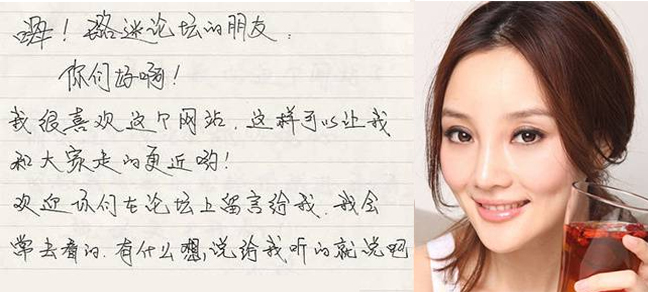 嗨！璐迷论坛的朋友：
你们好啊！
我很喜欢这个网站，这样可以让我
和大家走的更近哟！
欢迎你们在论坛上留言给我，我会
常去看的，有什么想说给我听的就说吧